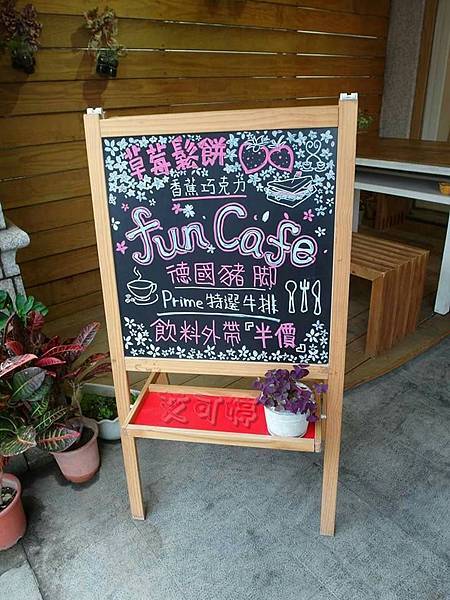 草莓鬆餅
香蕉巧克力
fun Cafe
德國豬脚
Prime特選牛排
飲料外帶『半價』
艾可婷